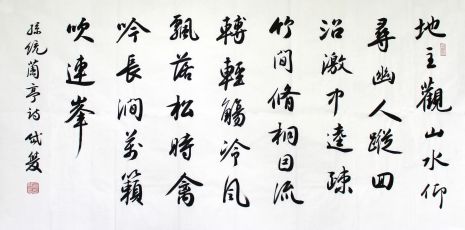 地主觀山水仰
尋幽人蹤回
沼激中逵疎
竹間脩桐因流
轉輕觴冷風
飄落松時禽
吟長澗萬籟
吹連峯
孫統蘭亭詩